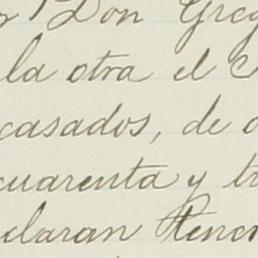 Don Greg
la otra el
casados, de
cuarenta y
claran tenen